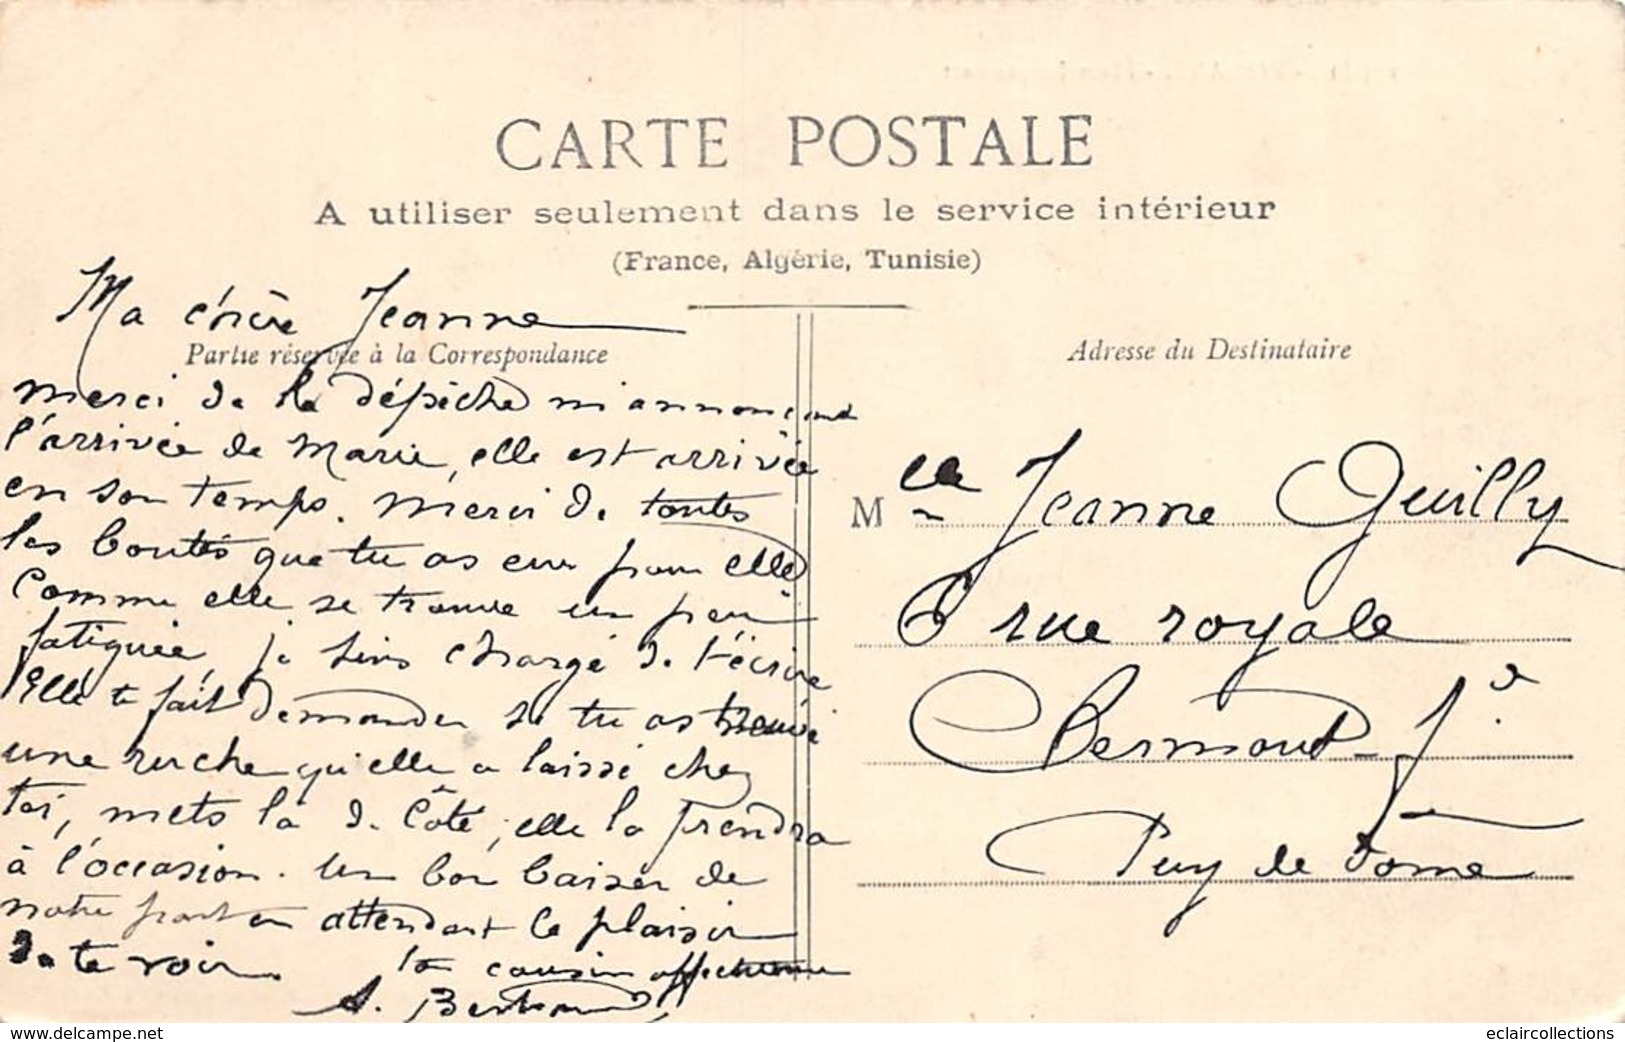 CARTE POSTALE
A utiliser seulement dans le service intérieur
(France, Algérie, Tunisie)
Ma chère Jeanne
Partie réservée à la Correspondance
merci de la dépêche m'annonçant
l'arrivée de Marie, elle est arrivée
en son temps. Merci de toutes
les bontés que tu as eu pour elle
Comme elle se trouve un peu
fatiguée, je suis chargé de t'écrire
Elle te fait demander si tu as trouvé
une ruche qu'elle a laissé chez
toi, mets la de Côté, elle la prendra
à l'occasion. Un bon baiser de
notre part en attendant le plaisir
de te voir. ton cousin affectionné
A. Bertrand
Adresse du Destinataire
Melle Jeanne Guilly
6 rue royale
Clermont-Fd
Puy de Dome
delcampe.net
eclaircollections